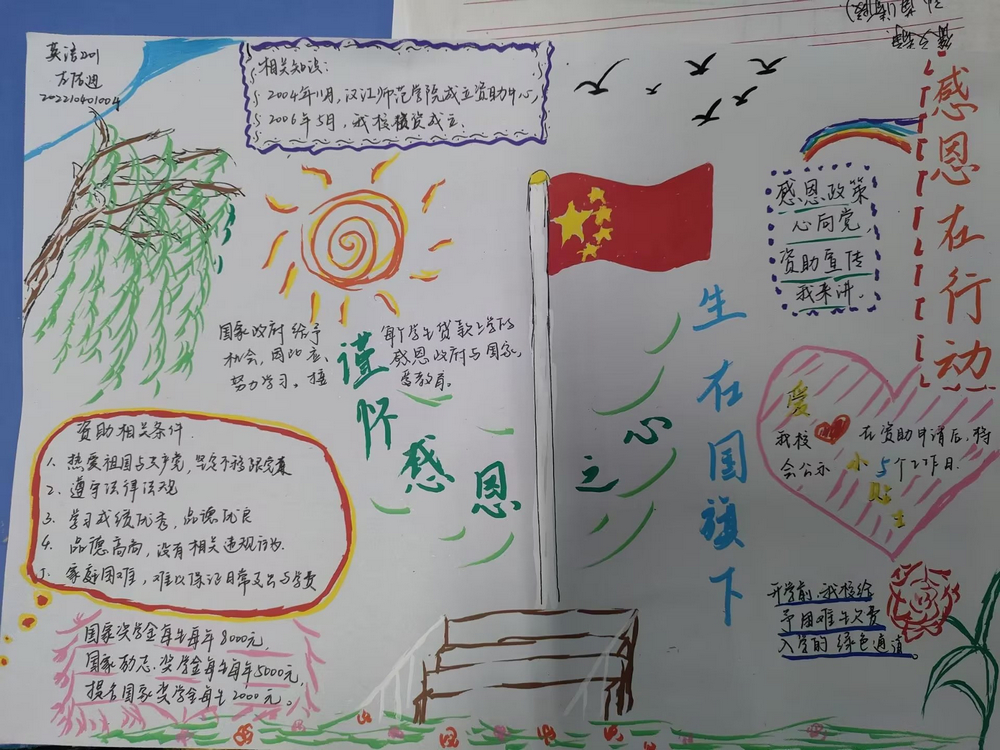 英语2201
202210401004
相关知识:
2004年11月,汉江师范学院成立资助中心,
2006年5月,我校核资成立.
感恩在行动
感恩政策
心向党,
资助宣传
我来讲.
国家政府给予
机会,因此应
努力学习。
每个学生贷款上学的
感恩政府与国家,
受教育。
谨怀感恩之心
生在国旗下
爱心小贴士
我校在资助申请后,将
会公示5个工作日.
资助相关条件.
1、热爱祖国与共产党,坚定不移跟党走
2、遵守法律法规
3、学习成绩优秀,品德优良
4、品德高尚,没有相关违规行为.
5、家庭困难,难以保证日常支出与学费
国家奖学金每生每年8000元,
国家励志奖学金每生每年5000元,
国家奖学金每生2000元。
开学前,我校给
予困难生交费
入学的绿色通道。